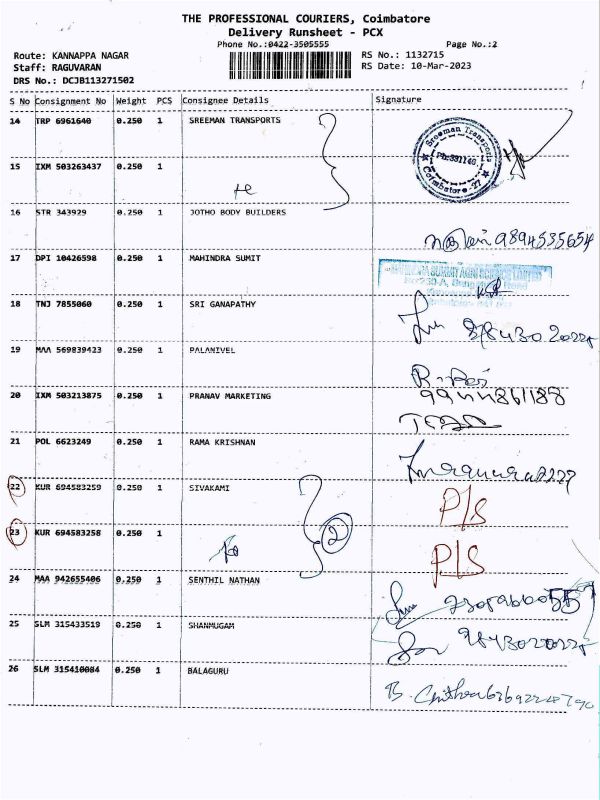 THE PROFESSIONAL COURIERS, Coimbatore
Delivery Runsheet - PCX
Phone No.:0422-3505555 Page No.:2
Route: KANNAPPA NAGAR RS No.: 1132715
Staff: RAGUVARAN RS Date: 10-Mar-2023
DRS No.: DCJB113271502
S No Consignment No Weight PCS Consignee Details Signature
14 TRP 6961640 0.250 1 SREEMAN TRANSPORTS
Sreeman Transports
Coimbatore
15 IXM 503263437 0.250 1
16 STR 343929 0.250 1 JOTHO BODY BUILDERS
9894535654
17 DPI 10426598 0.250 1 MAHINDRA SUMIT
18 TNJ 7855060 0.250 1 SRI GANAPATHY
19 MAA 569839423 0.250 1 PALANIVEL
20 IXM 503213875 0.250 1 PRANAV MARKETING
21 POL 6623249 0.250 1 RAMA KRISHNAN
22 KUR 694583259 0.250 1 SIVAKAMI
P/S
23 KUR 694583258 0.250 1
2
P/S
24 MAA 942655406 0.250 1 SENTHIL NATHAN
25 SLM 315433519 0.250 1 SHANMUGAM
26 SLM 315410084 0.250 1 BALAGURU
B. Chithra